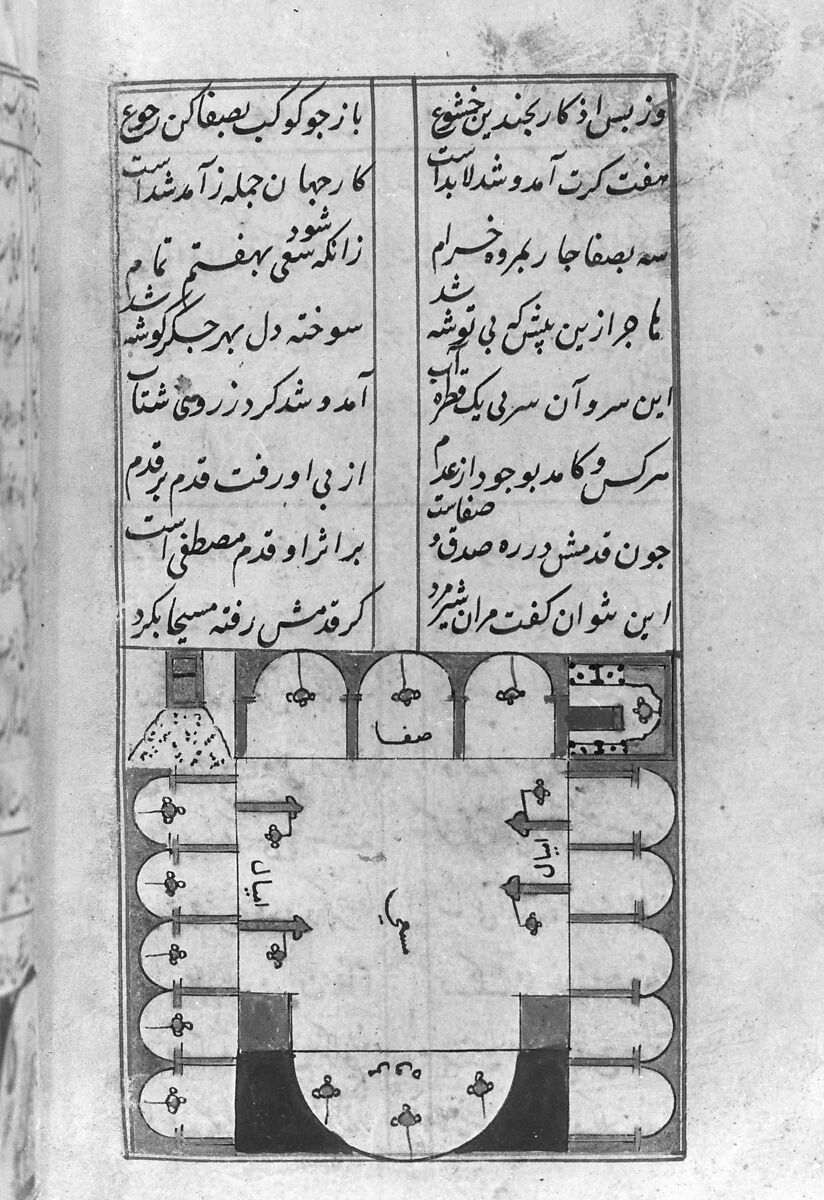 وز بس اذکار بچندین خشوع
باز جو کوکب بصفا کن رجوع
هفت کرت آمد و شد لا بداست
کار جهان جمله ز آمد شداست
سه بصفا جار بمروه خرام
زانکه شود سعی بهفتم تمام
هاجر ازین پیش که بی توشه شد
سوخته دل بهر جگرگوشه شد
این سر و آن سر بی یک قطره آب
آمد و شد کرد ز روی شتاب
هرکس و کامد بوجود از عدم
از بی او رفت قدم بر قدم
جون قدمش در ره صدق و صفاست
بر اثر او قدم مصطفی است
این نتوان کفت مران شیر مرد
کر قدمش رفته مسیحا بکرد
صفا
امیال
امیال
مسعی
مروه